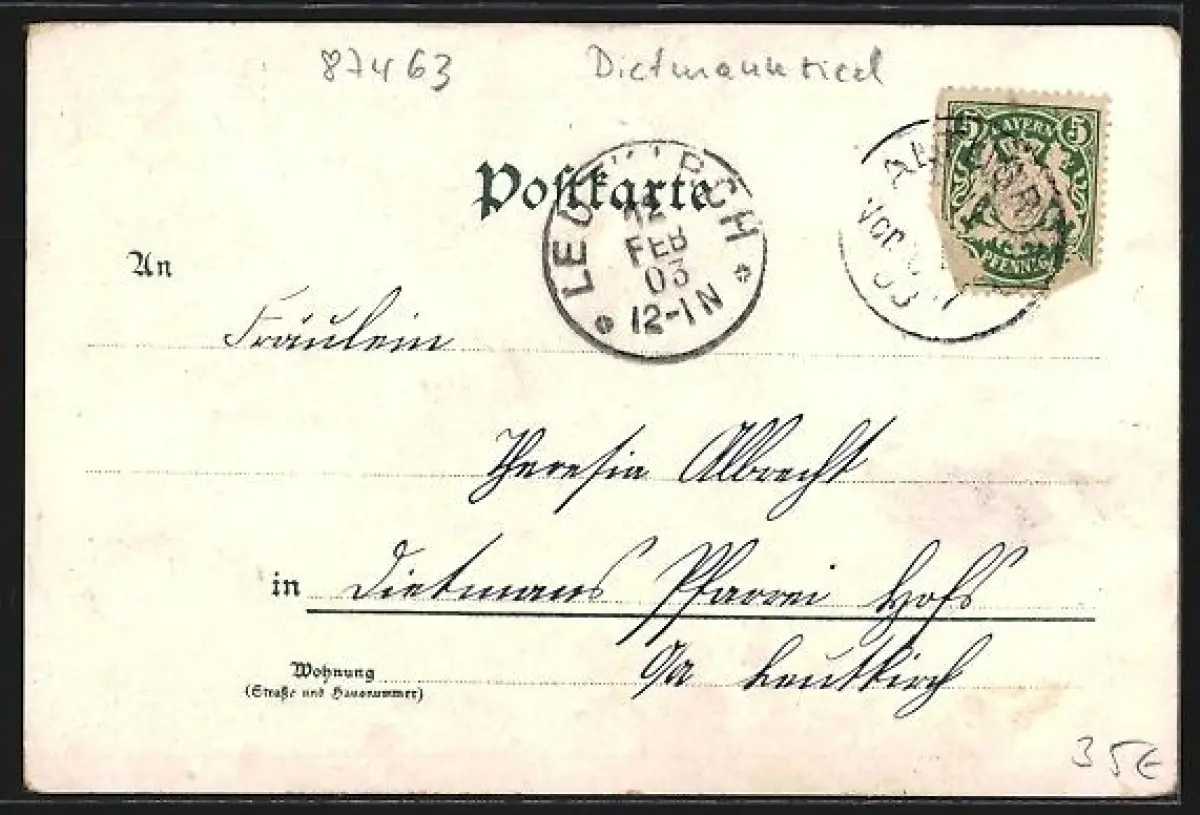 87463 Dietmannsried
5 BAYERN 5
PFENNIG
Postkarte
LEUTKIRCH
12
FEB
03
12-1N
An
Fräulein
Theresia Albrecht
in Dietmans Pfarrei Hofs
O/A Leutkirch
Wohnung
(Straße und Hausnummer)
35€